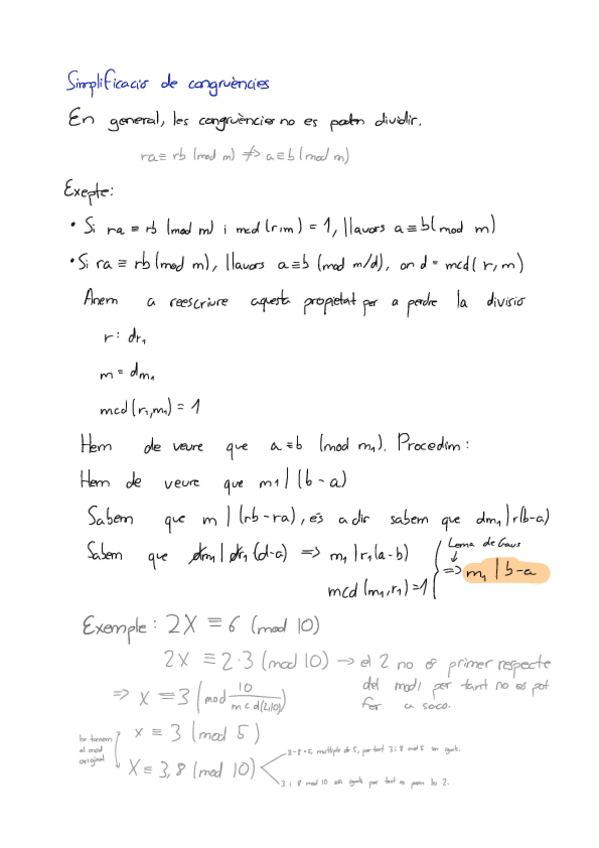 Simplificació de congruències
En general, les congruències no es poden dividir.
ra ≡ rb (mod m) ⇏ a ≡ b (mod m)
Exepte:
• Si ra ≡ rb (mod m) i mcd(r,m) = 1, llavors a ≡ b (mod m)
• Si ra ≡ rb (mod m), llavors a ≡ b (mod m/d), on d = mcd(r, m)
Anem a reescriure aquesta propietat per a perdre la divisio
r: dr₁
m = dm₁
mcd(r₁,m₁) = 1
Hem de veure que a ≡ b (mod m₁). Procedim:
Hem de veure que m1 | (b - a)
Sabem que m | (rb - ra), és a dir sabem que dm₁ | r(b-a)
Sabem que dm₁ | dr₁ (d-a) => m₁ | r₁(a-b)
mcd(m₁,r₁) = 1
Lema de Gaus
=> m₁ | b-a
Exemple: 2X ≡ 6 (mod 10)
2X ≡ 2·3 (mod 10) → el 2 no és primer respecte
del mod, per tant no es pot
fer a saco.
=> X ≡ 3 (mod 10/mcd(2,10))
ho tornem al mod original
X ≡ 3 (mod 5)
X ≡ 3, 8 (mod 10)
3-8=5, multiple de 5, per tant 3 i 8 mod 5 son iguals.
3 i 8 mod 10 son iguals per tant es posen els 2.